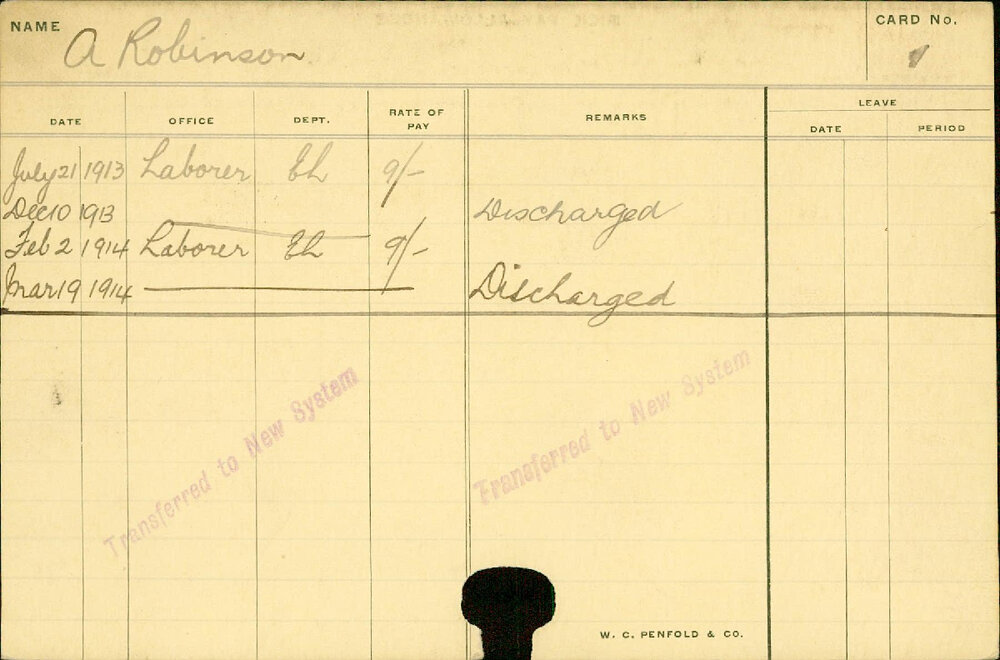 NAME A Robinson CARD No. 1
LEAVE
DATE OFFICE DEPT. RATE OF PAY REMARKS DATE PERIOD
July 21 1913 Laborer Eh 9/-
Dec 10 1913 Discharged
Feb 2 1914 Laborer Eh 9/-
Mar 19 1914 Discharged
Transferred to New System
Transferred to New System
W. C. PENFOLD & CO.